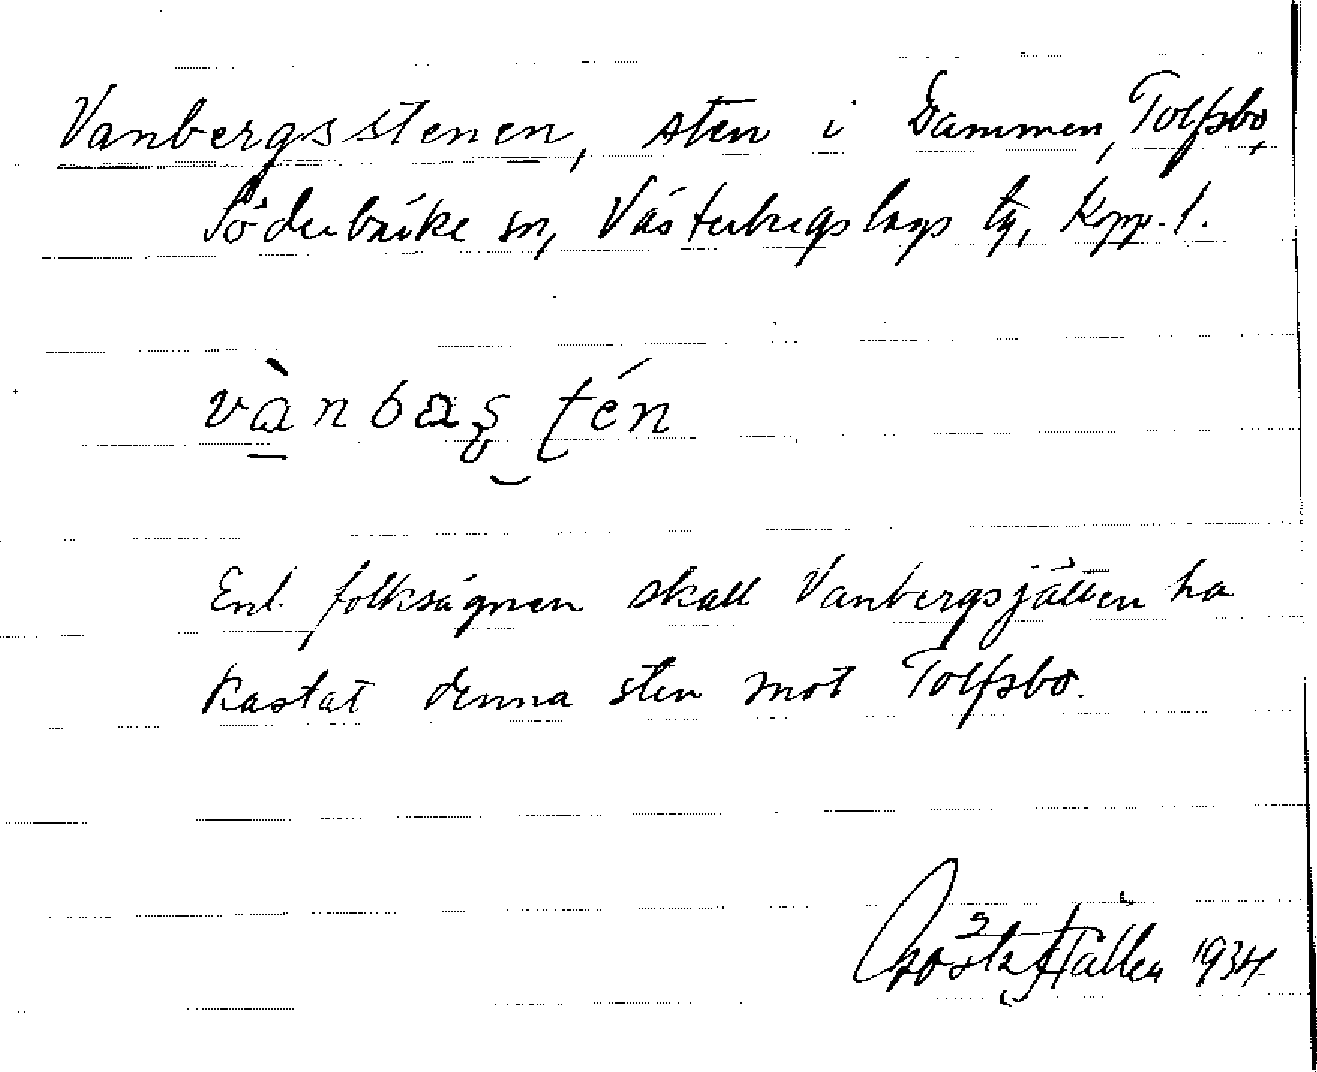 Vanbergsstenen, sten i Dammen, Tolfsbo,
Söderbärke sn, Västerbergslags tg, Kopp. l.
vànbaş tén
Enl. folksägnen skall Vanbergsjätten ha
kastat denna sten mot Tolfsbo.
Gösta 1934